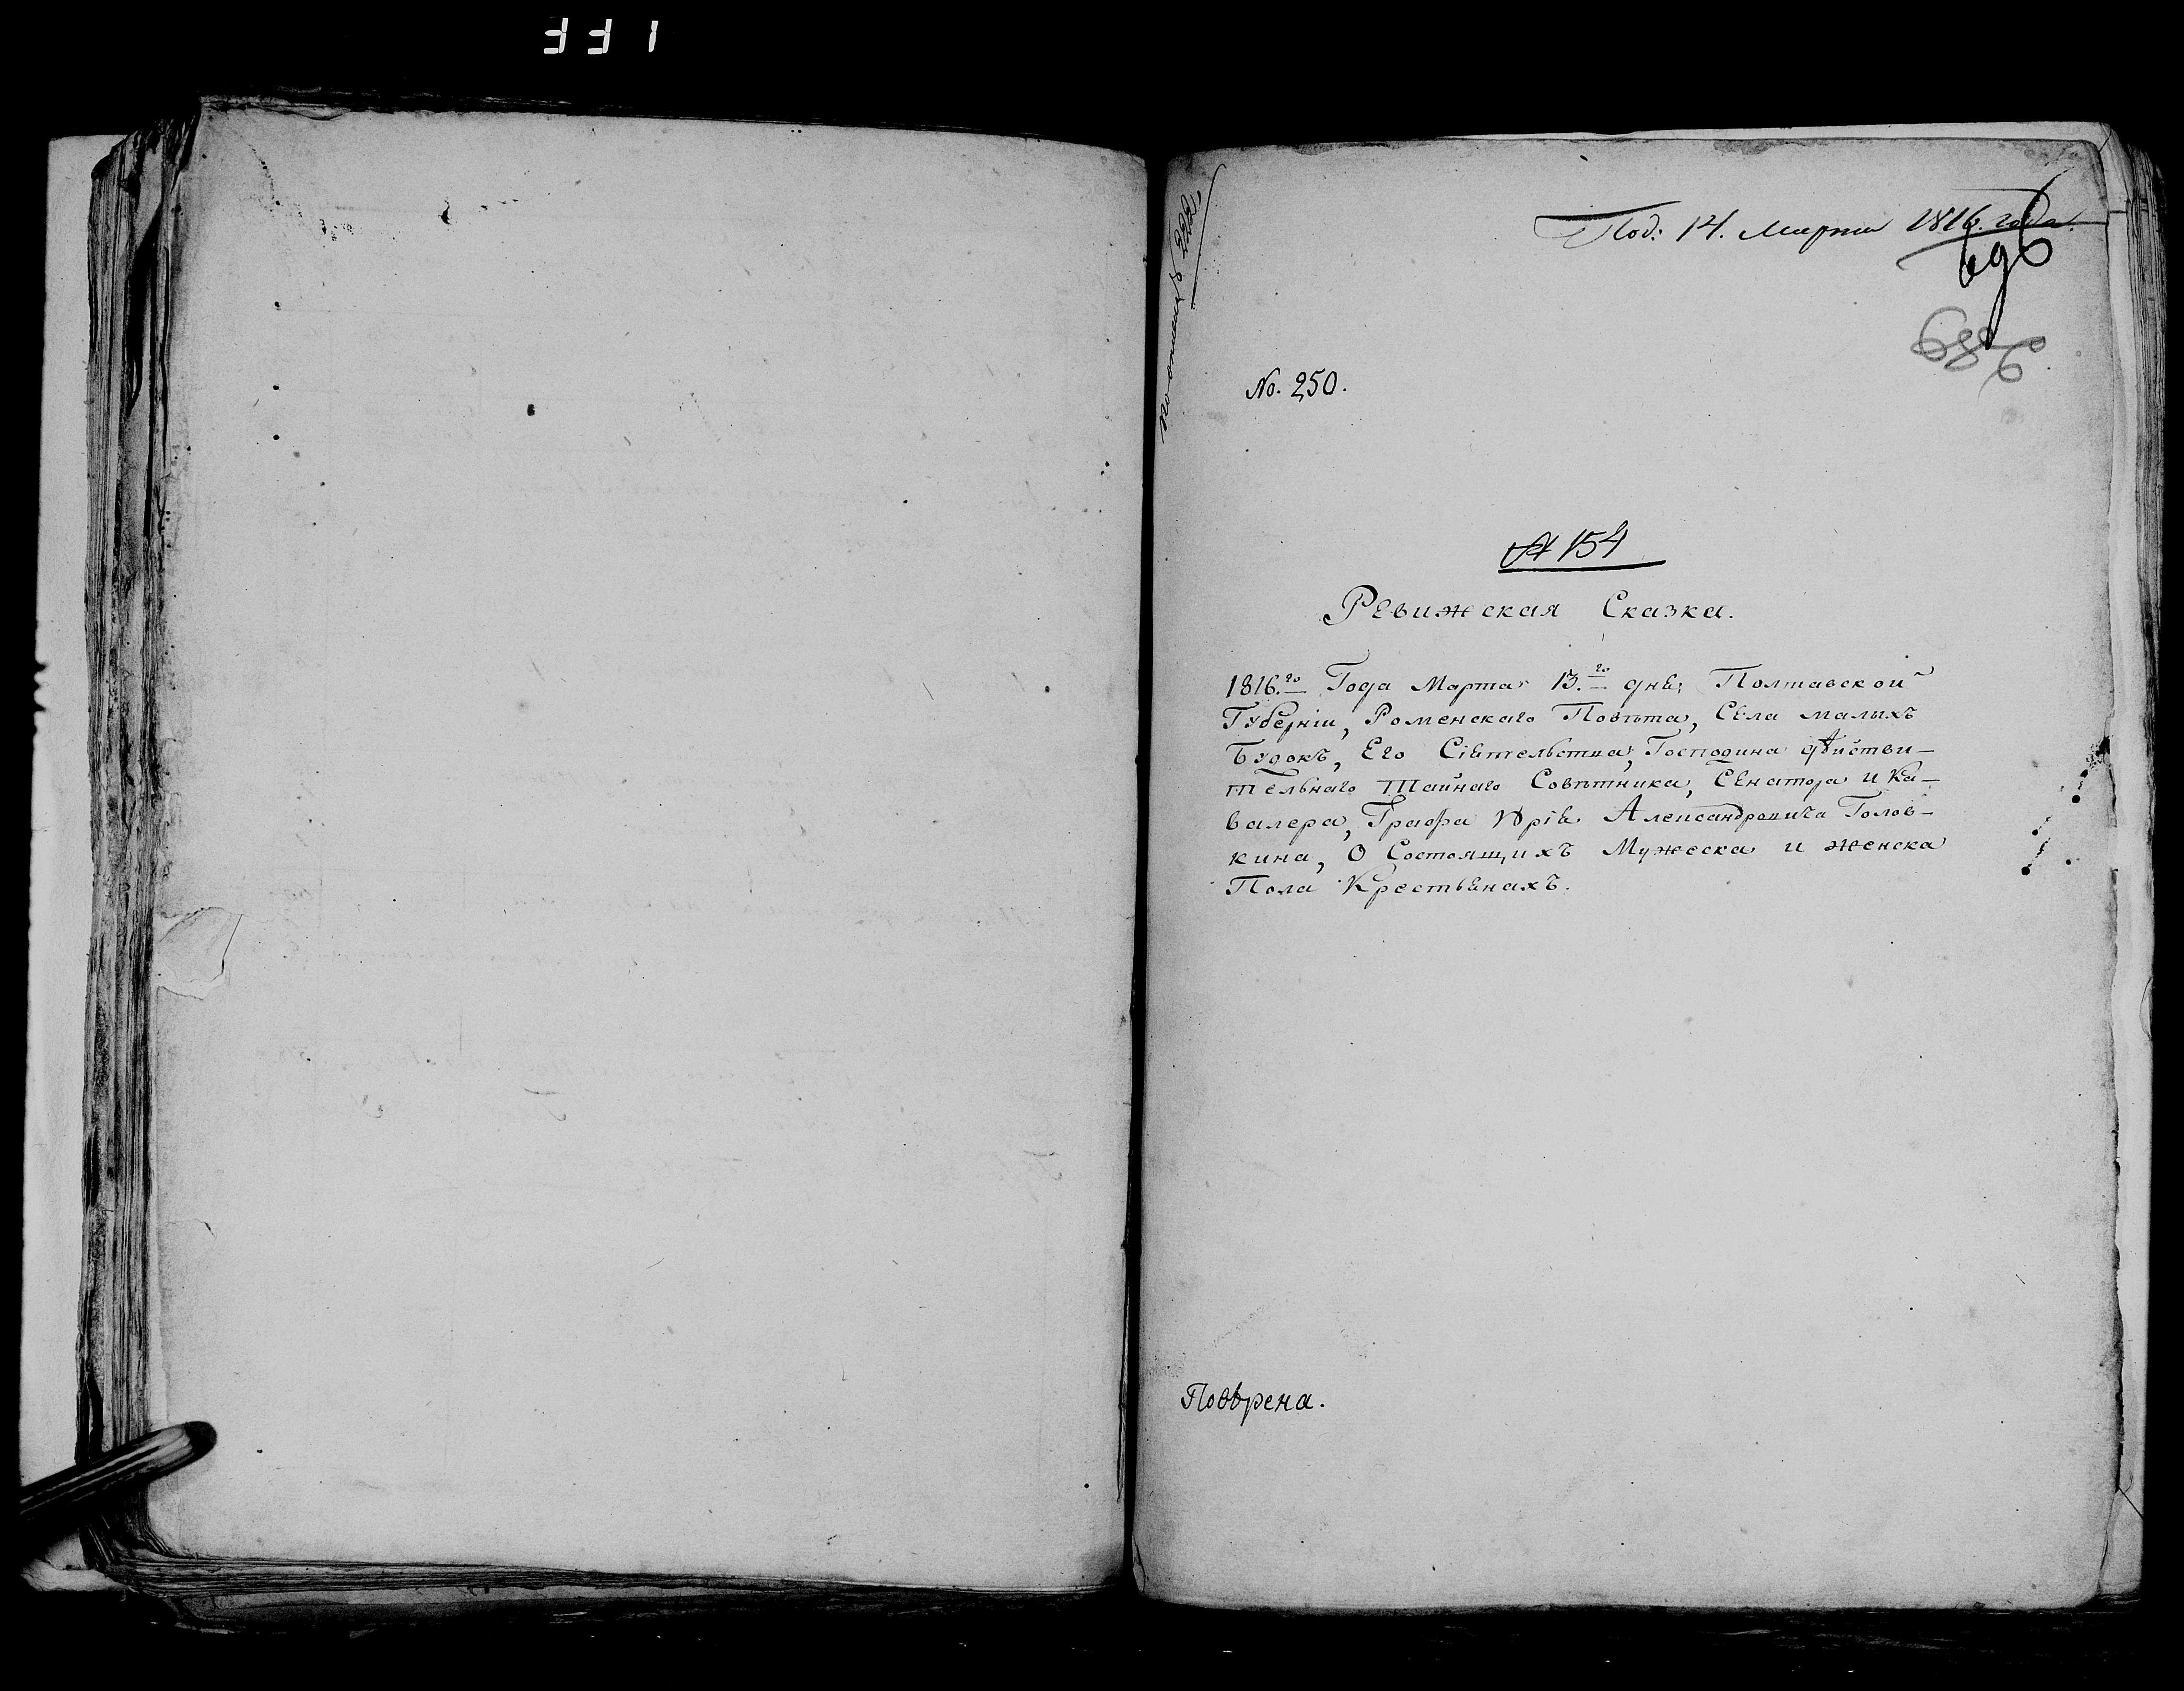 Под: 14. Марта 1816. года.
696
686
No. 250.
154
Ревижская Сказка.
1816.го Года Марта 13.го дня, Полтавской
Губерніи, Роменскаго Повѣта, Села малыхъ
Будокъ, Его Сіятельства, Господина дѣйстви-
тельнаго Тайнаго Совѣтника, Сенатора и Ка-
валера, Графа Юрія Александровича Голов-
кина, О Состоящихъ Мужеска и женска
Пола Крестьянахъ.
Повѣрена.